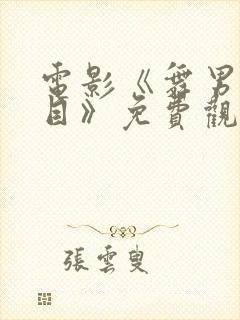 電影《舞男
目》免費觀
張雲叟